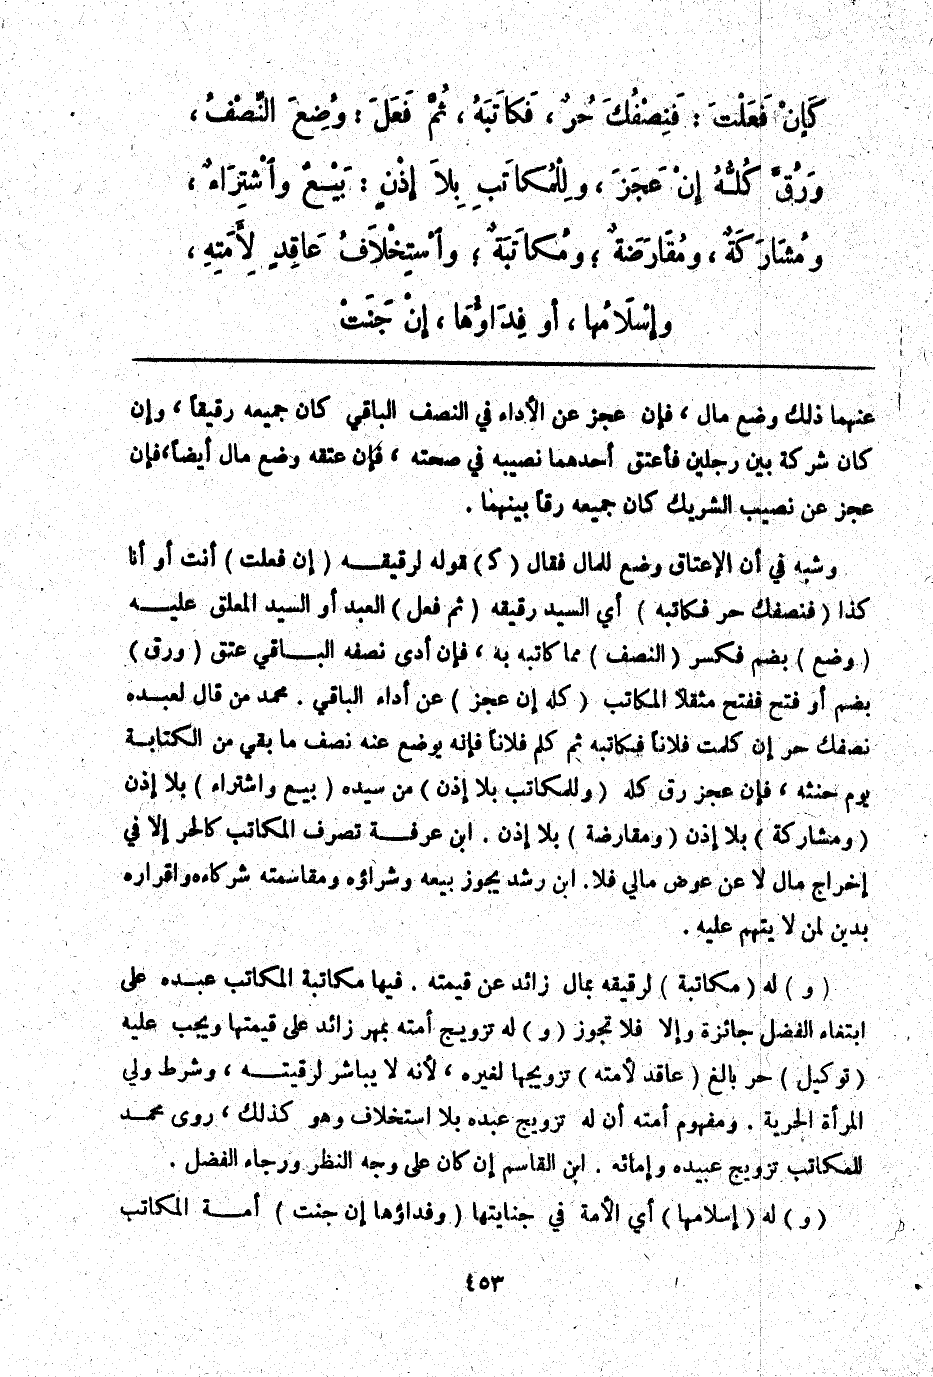 كَإِنْ فَعَلْتَ : فَنِصْفُكَ حُرٌّ ، فَكاتَبَهُ ، ثُمَّ فَعَلَ : وُضِعَ النِّصْفُ ،
وَرُقَّ كُلُّهُ إِنْ عَجَزَ ، ولِلْمُكاتَبِ بِلاَ إِذْنٍ : بَيْعٌ وٱشْتِرَاءٌ ،
ومُشَارَكَةٌ ، ومُقَارَضَةٌ ؛ ومُكاتَبَةٌ ؛ وٱسْتِخْلاَفُ عَاقِدٍ لِأَمَتِهِ ،
وإِسْلَامُها ، أو فِدَاؤُهَا ، إِنْ جَنَتْ
عنهما ذلك وضع مال ، فإن عجز عن الأداء في النصف الباقي كان جميعه رقيقاً ، وإن
كان شركة بين رجلين فأعتق أحدهما نصيبه في صحته ، فإن عتقه وضع مال أيضاً،فإن
عجز عن نصيب الشريك كان جميعه رقاً بينهما .
وشبه في أن الإعتاق وضع للمال فقال ( كـ ) قوله لرقيقـــه ( إن فعلت ) أنت أو أنا
كذا ( فنصفك حر فكاتبه ) أي السيد رقيقه ( ثم فعل ) العبد أو السيد المعلق عليـــه
( وضع ) بضم فكسر ( النصف ) مما كاتبه به ، فإن أدى نصفه البـــاقي عتق ( ورق )
بضم أو فتح ففتح مثقلاً المكاتب ( كله إن عجز ) عن أداء الباقي . محمد من قال لعبــده
نصفك حر إن كلمت فلاناً فكاتبه ثم كلم فلاناً فإنه يوضع عنه نصف ما بقي من الكتابــة
يوم حنثه ، فإن عجز رق كله ( وللمكاتب بلا إذن ) من سيده ( بيع واشتراء ) بلا إذن
( ومشاركة ) بلا إذن ( ومقارضة ) بلا إذن . ابن عرفــة تصرف المكاتب كالحر إلا في
إخراج مال لا عن عوض مالي فلا. ابن رشد يجوز بيعه وشراؤه ومقاسمته شركاءه واقراره
بدين لمن لا يتهم عليه .
( و ) له ( مكاتبة ) لرقيقه بمال زائد عن قيمته . فيها مكاتبة المكاتب عبــده على
ابتغاء الفضل جائزة وإلا فلا تجوز ( و ) له تزويج أمته بمهر زائد على قيمتها ويجب عليه
( توكيل ) حر بالغ ( عاقد لأمته ) تزويجها لغيره ، لأنه لا يباشر لرقيتـــه ، وشرط ولي
المرأة الحرية . ومفهوم أمته أن له تزويج عبده بلا استخلاف وهو كذلك ، روى محمــد
للمكاتب تزويج عبيده وإمائه . ابن القاسم إن كان على وجه النظر ورجاء الفضل .
( و ) له ( إسلامها ) أي الأمة في جنايتها ( وفداؤها إن جنت ) أمـــة المكاتب
٤٥٣